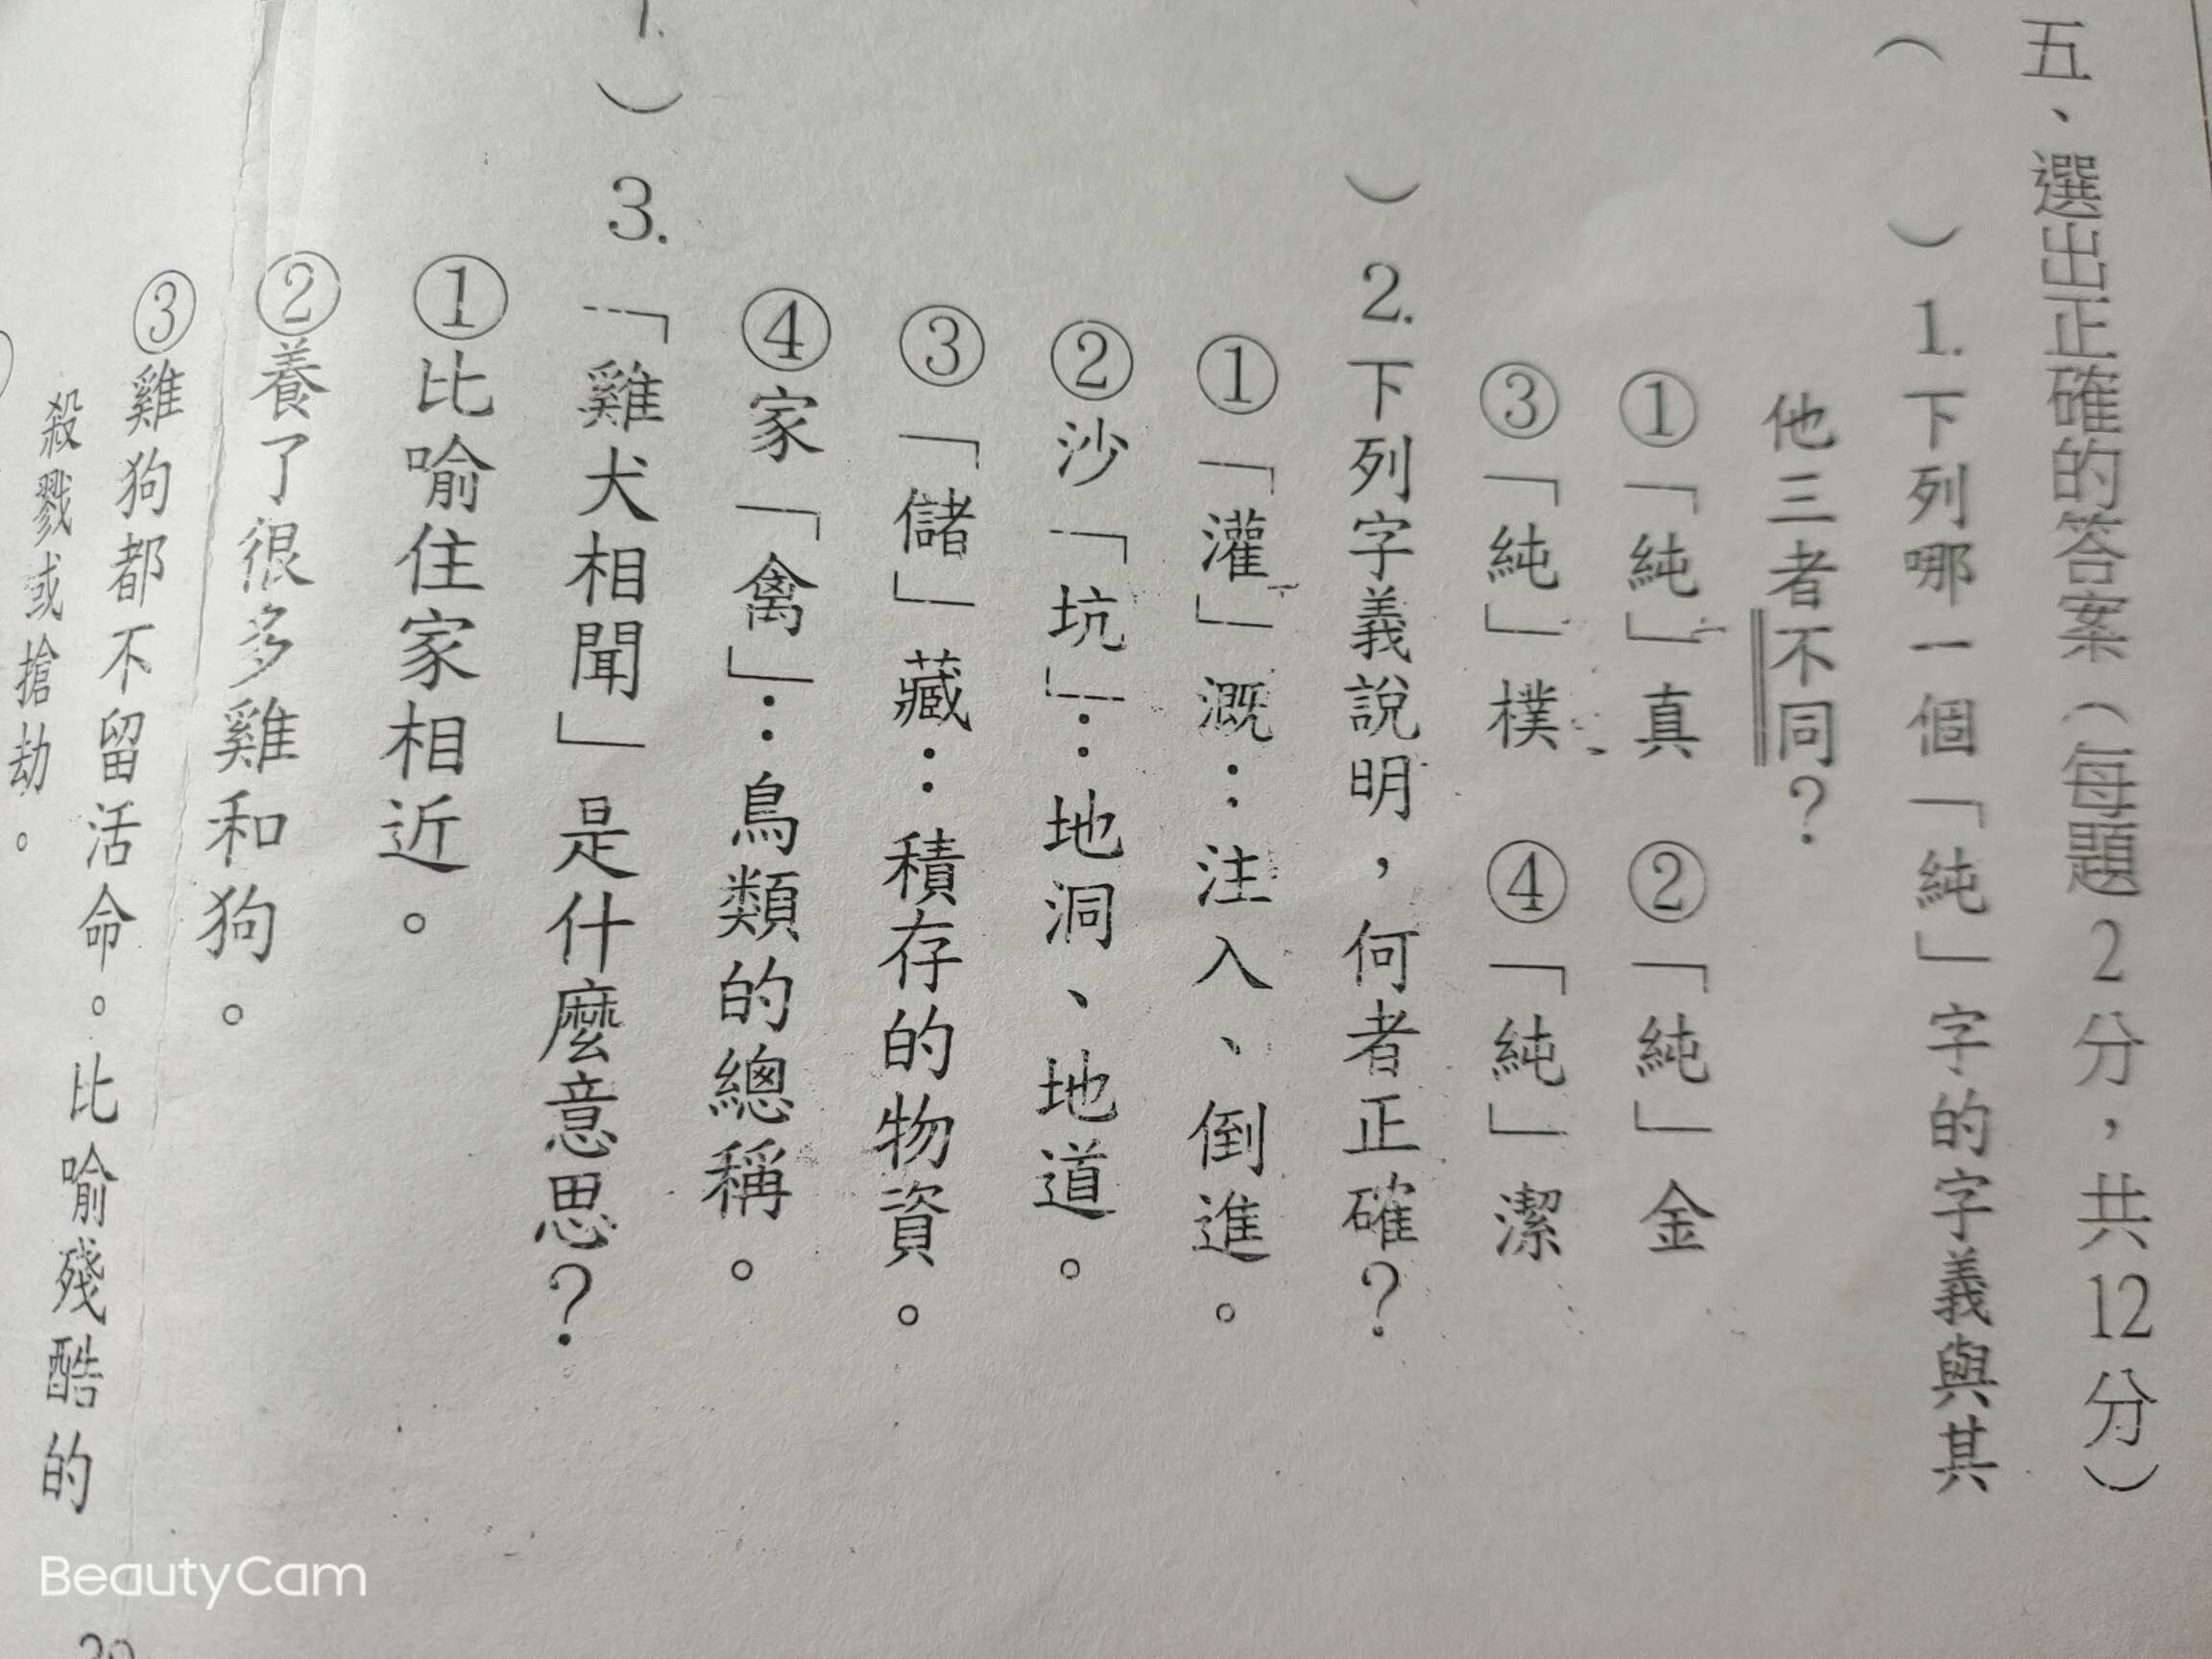 五、選出正確的答案（每題2分，共12分）
（　）1.下列哪一個「純」字的字義與其
他三者不同？
①「純」真　②「純」金
③「純」樸　④「純」潔
）2.下列字義說明，何者正確？
①「灌」溉：注入、倒進。
②沙「坑」：地洞、地道。
③「儲」藏：積存的物資。
④家「禽」：鳥類的總稱。
）3.「雞犬相聞」是什麼意思？
①比喻住家相近。
②養了很多雞和狗。
③雞狗都不留活命。比喻殘酷的
殺戮或搶劫。
BeautyCam